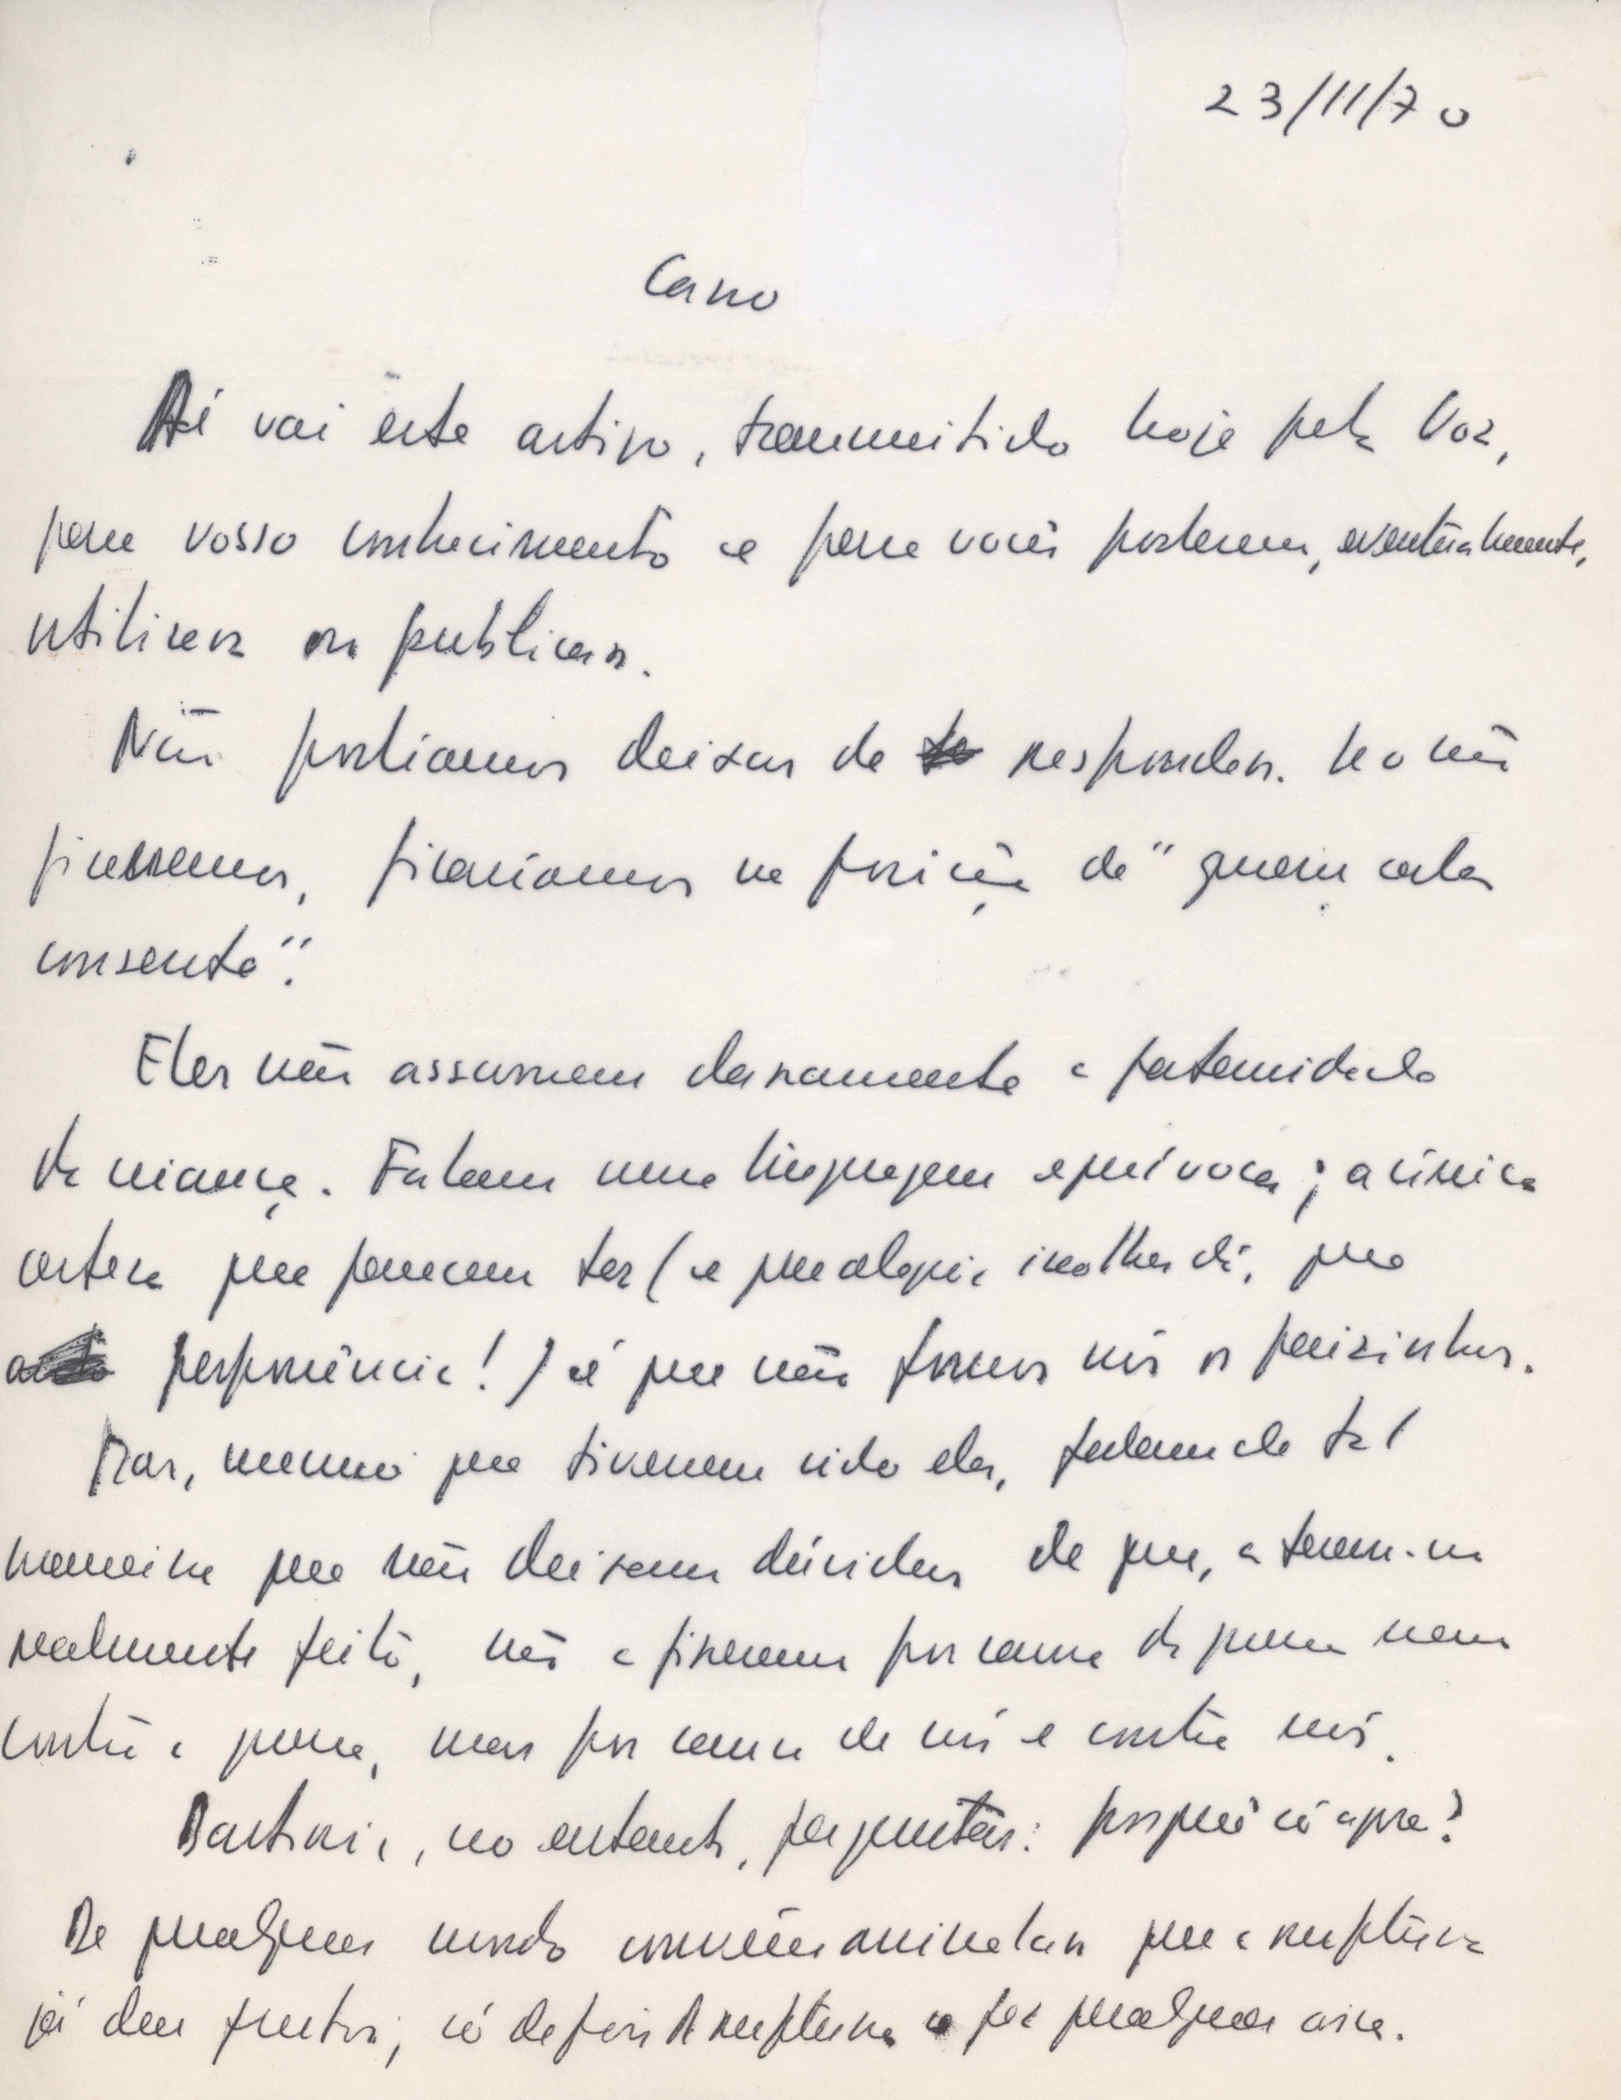 23/11/70
Caro
Aí vai êste artigo, transmitido hoje pela Voz,
para vosso conhecimento e para vocês poderem, eventualmente,
utilizar ou publicar.
Não podíamos deixar de responder. Se o não
fizessemos, ficaríamos na posição de "quem cala
consente".
Eles não assumem claramente a paternidade
da criança. Falam numa linguagem equívoca; a única
certeza que parecem ter (e que alegria isso lhes dá, que
!) é que não fomos nós os paizinhos.
Mas, mesmo que tivessem sido eles, falam de tal
maneira que não deixam dúvidas de que, a terem-na
realmente feito, não a fizeram por causa da guerra nem
contra a guerra, mas por causa de nós e contra nós.
Bastaria, no entanto, perguntar: porquê só agora?
De qualquer modo convém assinalar que a ruptura
já deu frutos; só depois da ruptura se fez qualquer coisa.